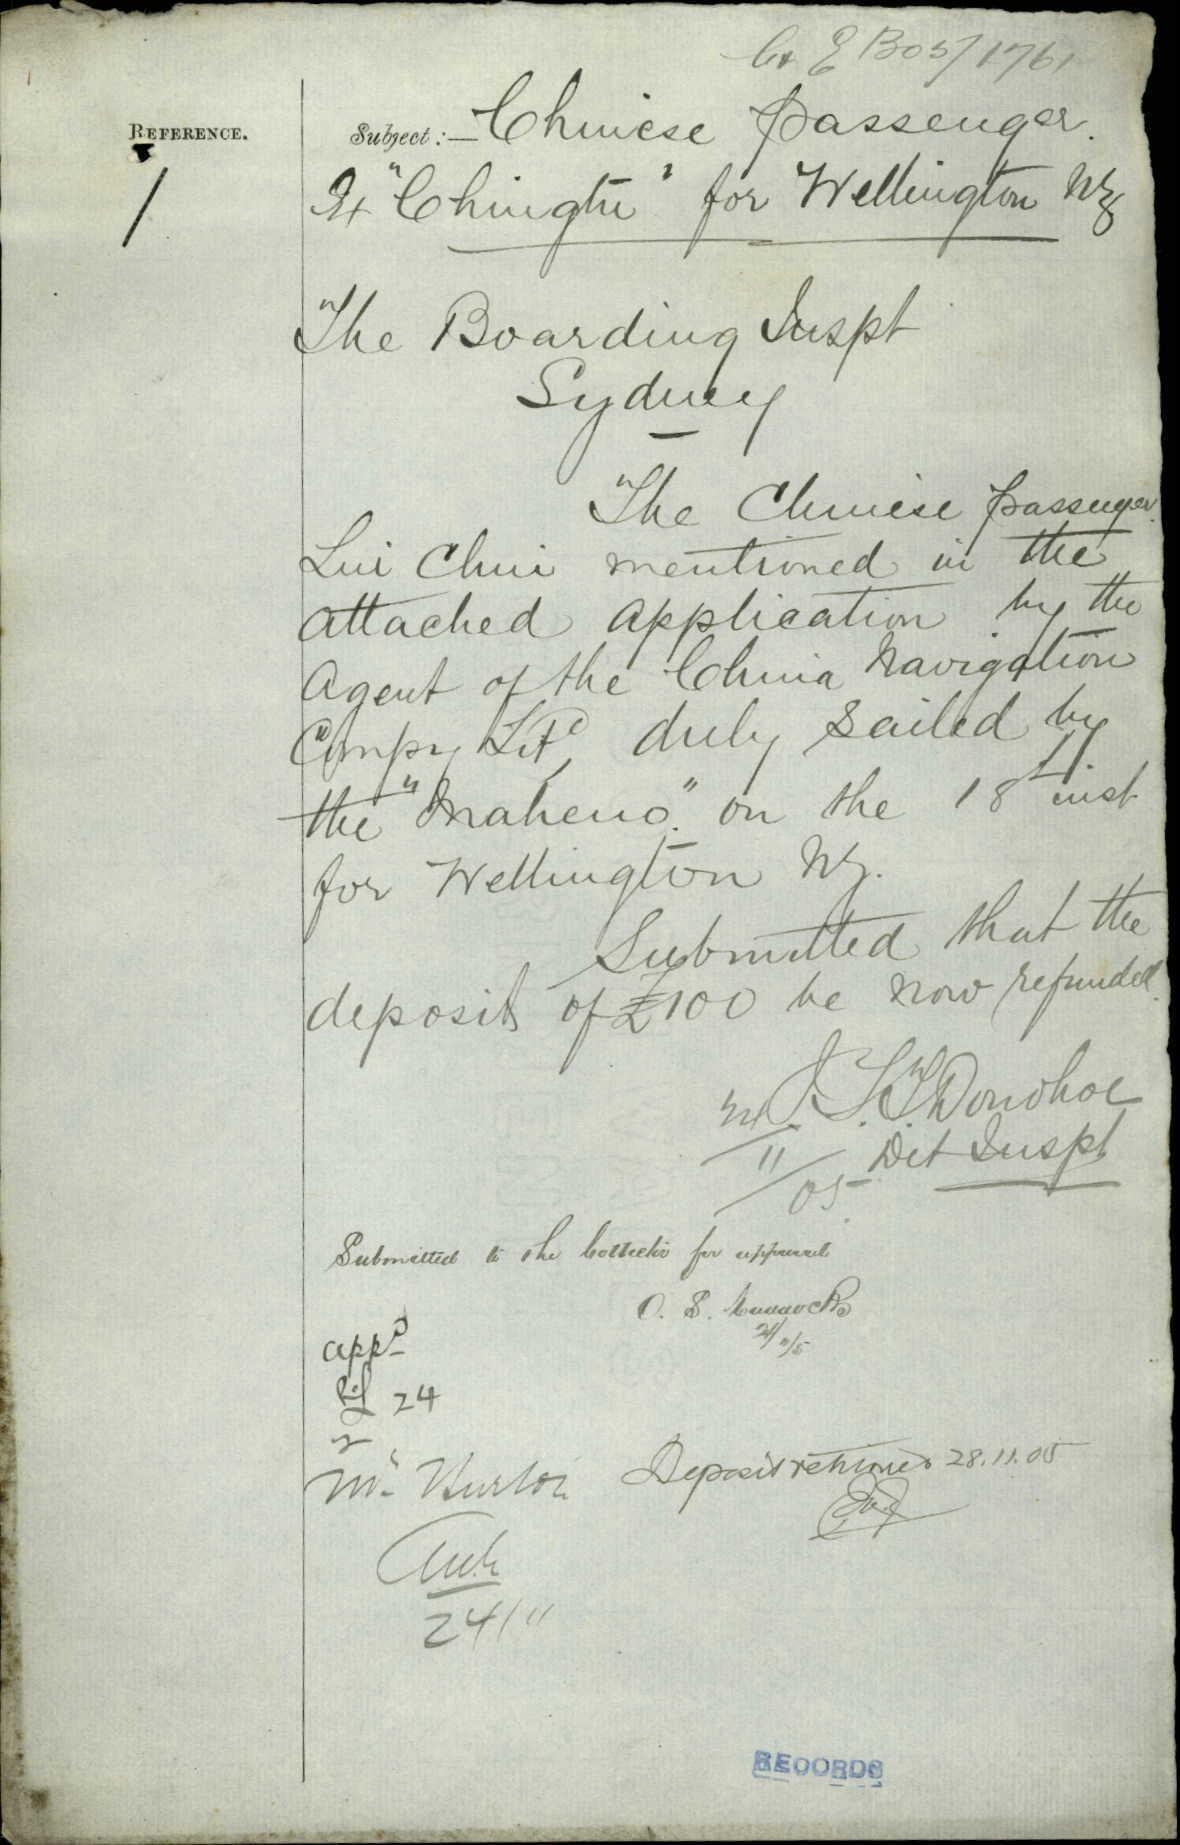 B05/1761
REFERENCE.
1
Subject:— Chinese passenger.
Ex "Chingtu" for Wellington NZ
The Boarding Inspt
Sydney
The Chinese passenger
Lui Chui mentioned in the
attached application by the
Agent of the China Navigation
Compy Ltd, duly sailed by
the "Maheno." on the 18th inst
for Wellington NZ.
Submitted that the
deposit of £100 be now refunded.
J. T. T. Donohoe
Det Inspt
11/05
Submitted to the Collector for approval
21/11/5
appd
24
Mr Burton
Deposit returned 28.11.05
24/11
RECORDS